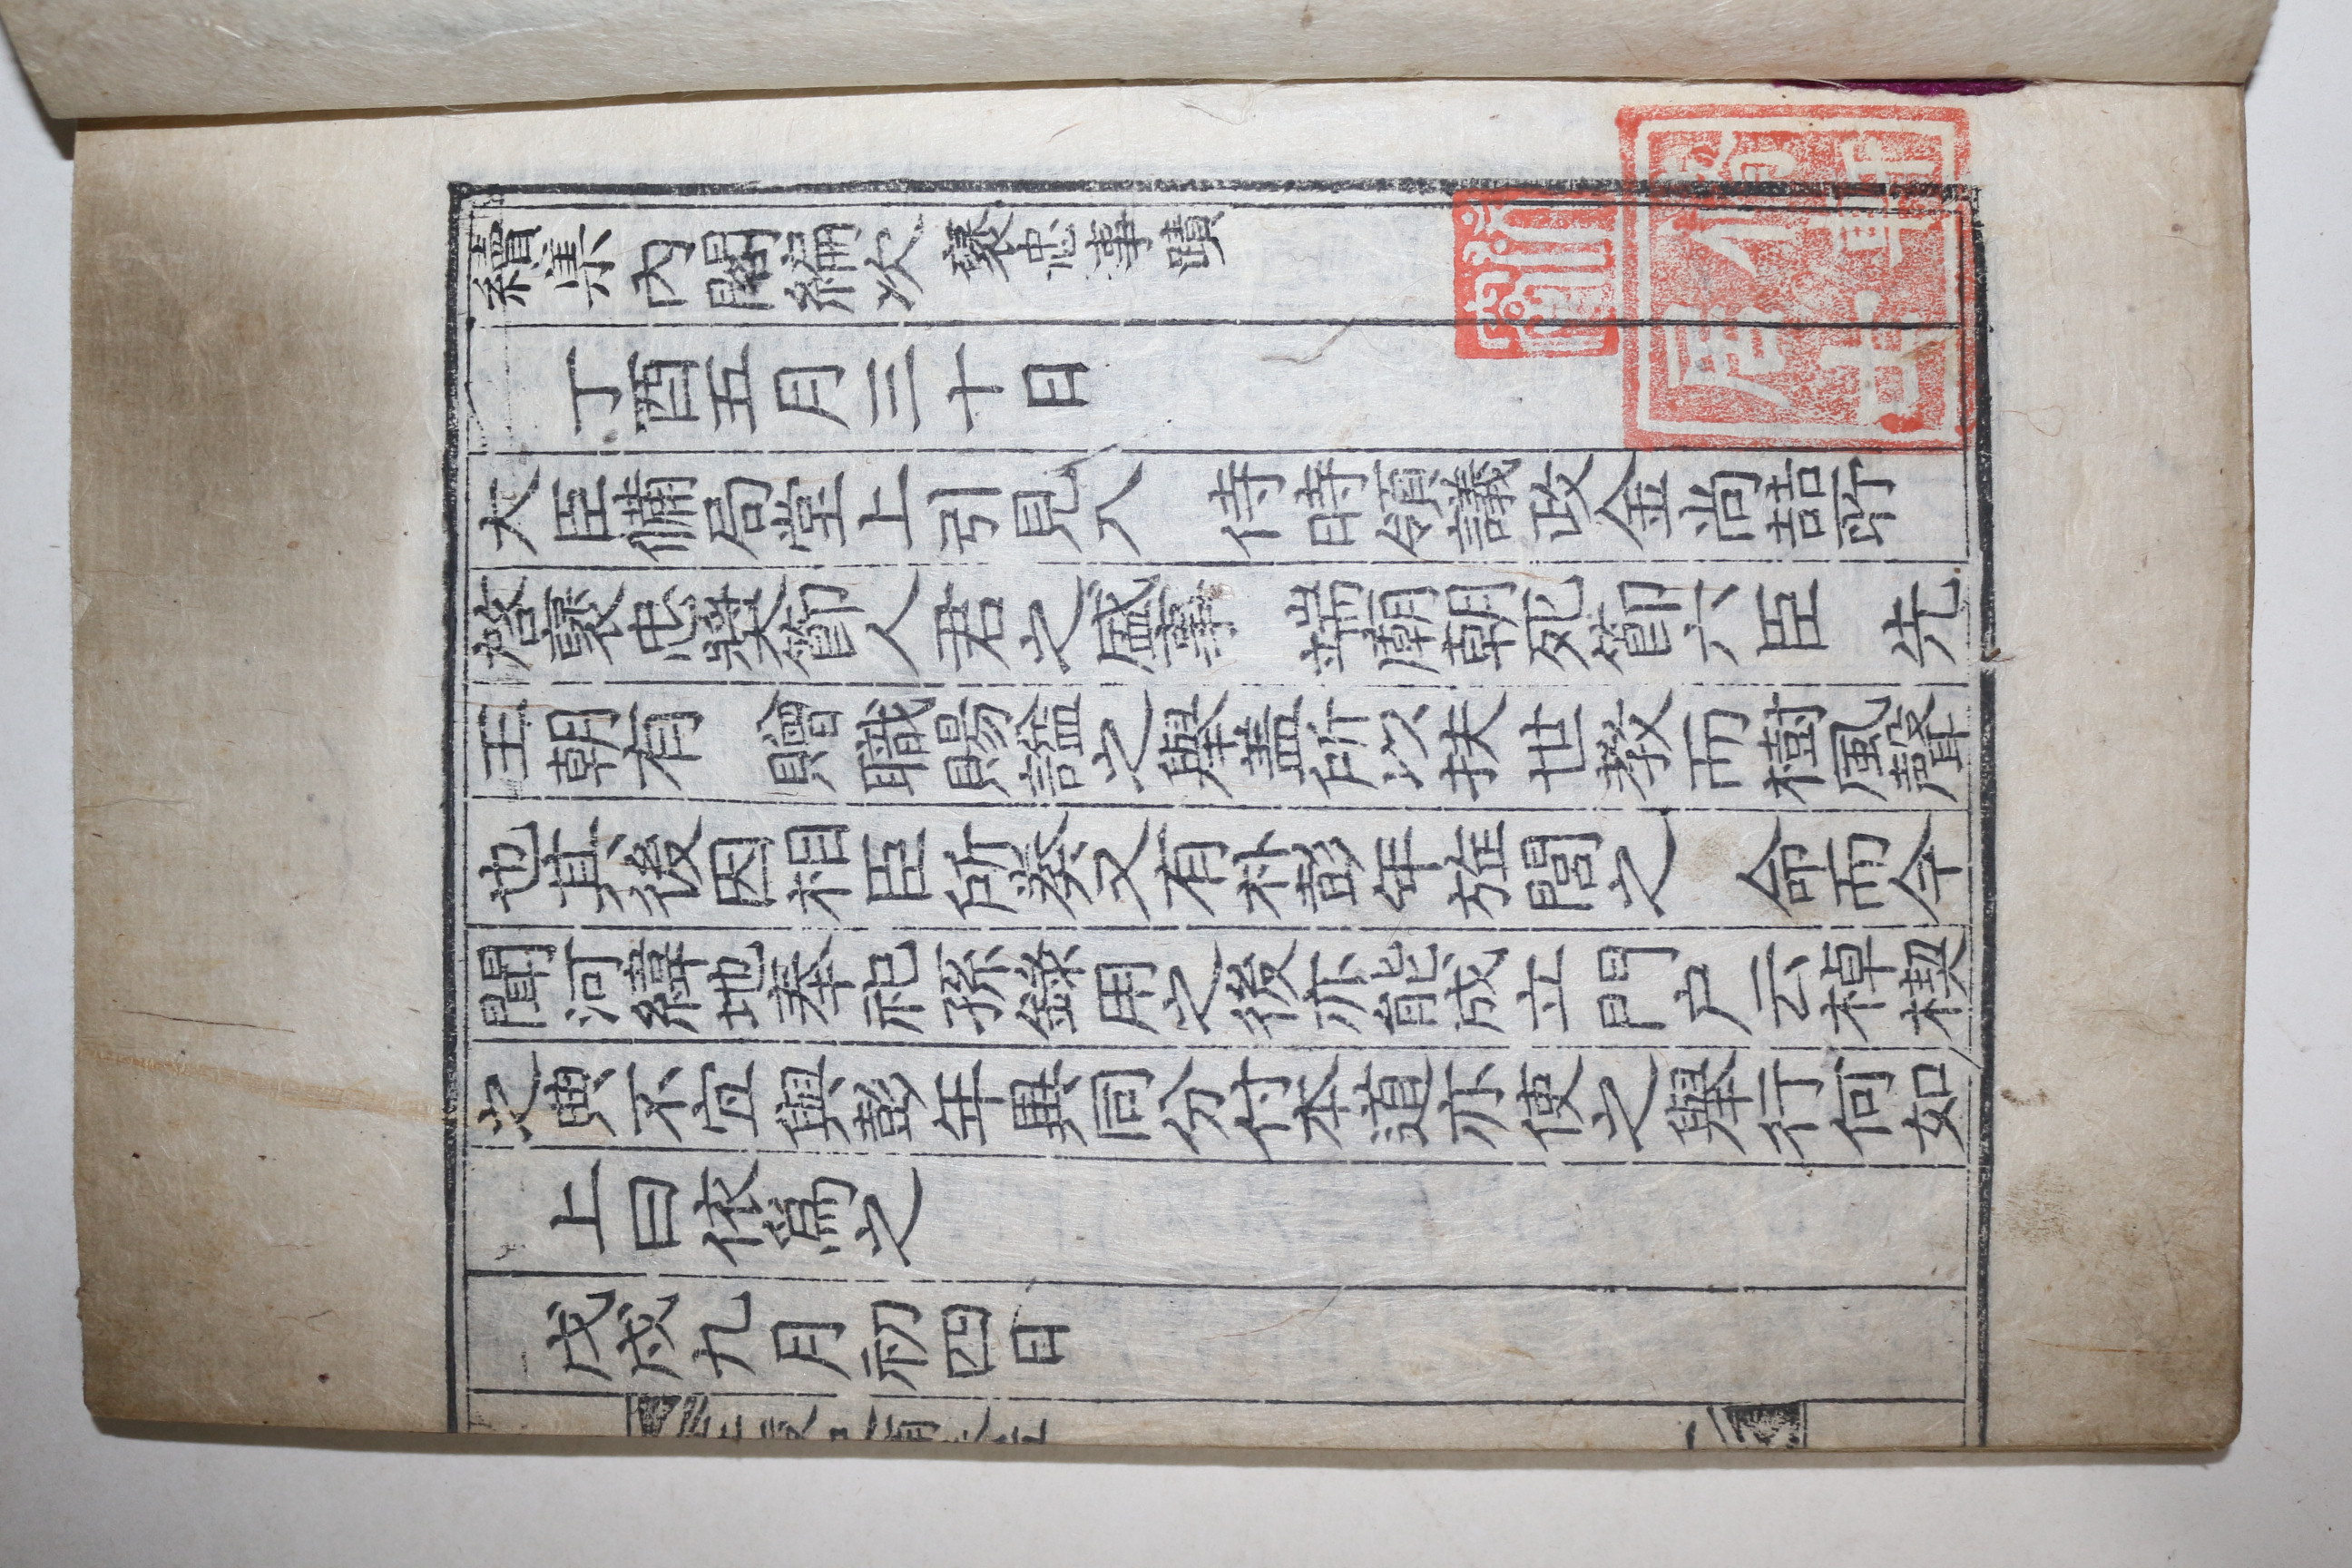 續集 內閣編次 褒忠事蹟
丁酉五月三十日
大臣備局堂上引見入 侍時領議政金尚喆所
啓褒忠奬節人君之盛事 端廟朝死節六臣 先
王朝有 贈職賜諡之擧盖所以扶世敎而樹風聲
也其後因相臣所奏又有朴彭年旌閭之 命而今
聞河緯地奉祀孫錄用之後亦能成立門戶云棹楔
之典不宜與彭年異同分付本道亦使之擧行何如
上曰依爲之
戊戌九月初四日